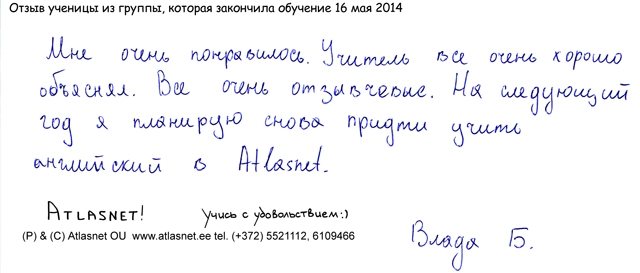 Отзыв ученицы из группы, которая закончила обучение 16 мая 2014
Мне очень понравилось. Учитель все очень хорошо
объяснял. Все очень отзывчевые. На следующий
год я планирую снова придти учить
английский в Atlasnet.
ATLASNET! Учись с удовольствием:)
(P) & (C) Atlasnet OU www.atlasnet.ee tel. (+372) 5521112, 6109466
Влада Б.